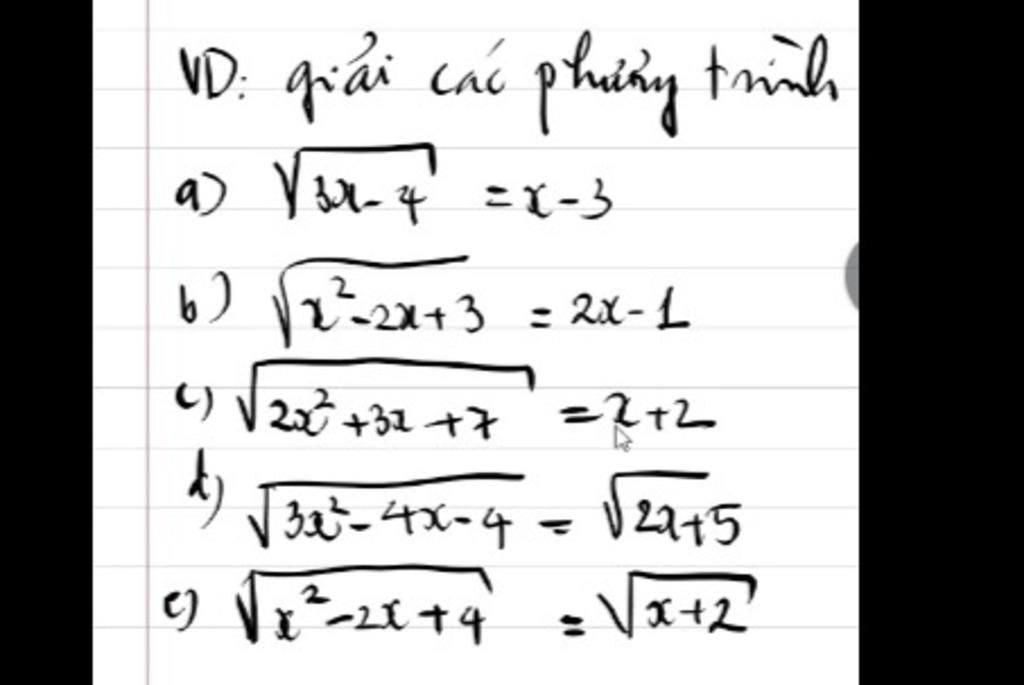 VD: giải các phương trình
a) √(3x-4) = x-3
b) √(x²-2x+3) = 2x-1
c) √(2x²+3x+7) = x+2
d) √(3x²-4x-4) = √(2x+5)
e) √(x²-2x+4) = √(x+2)